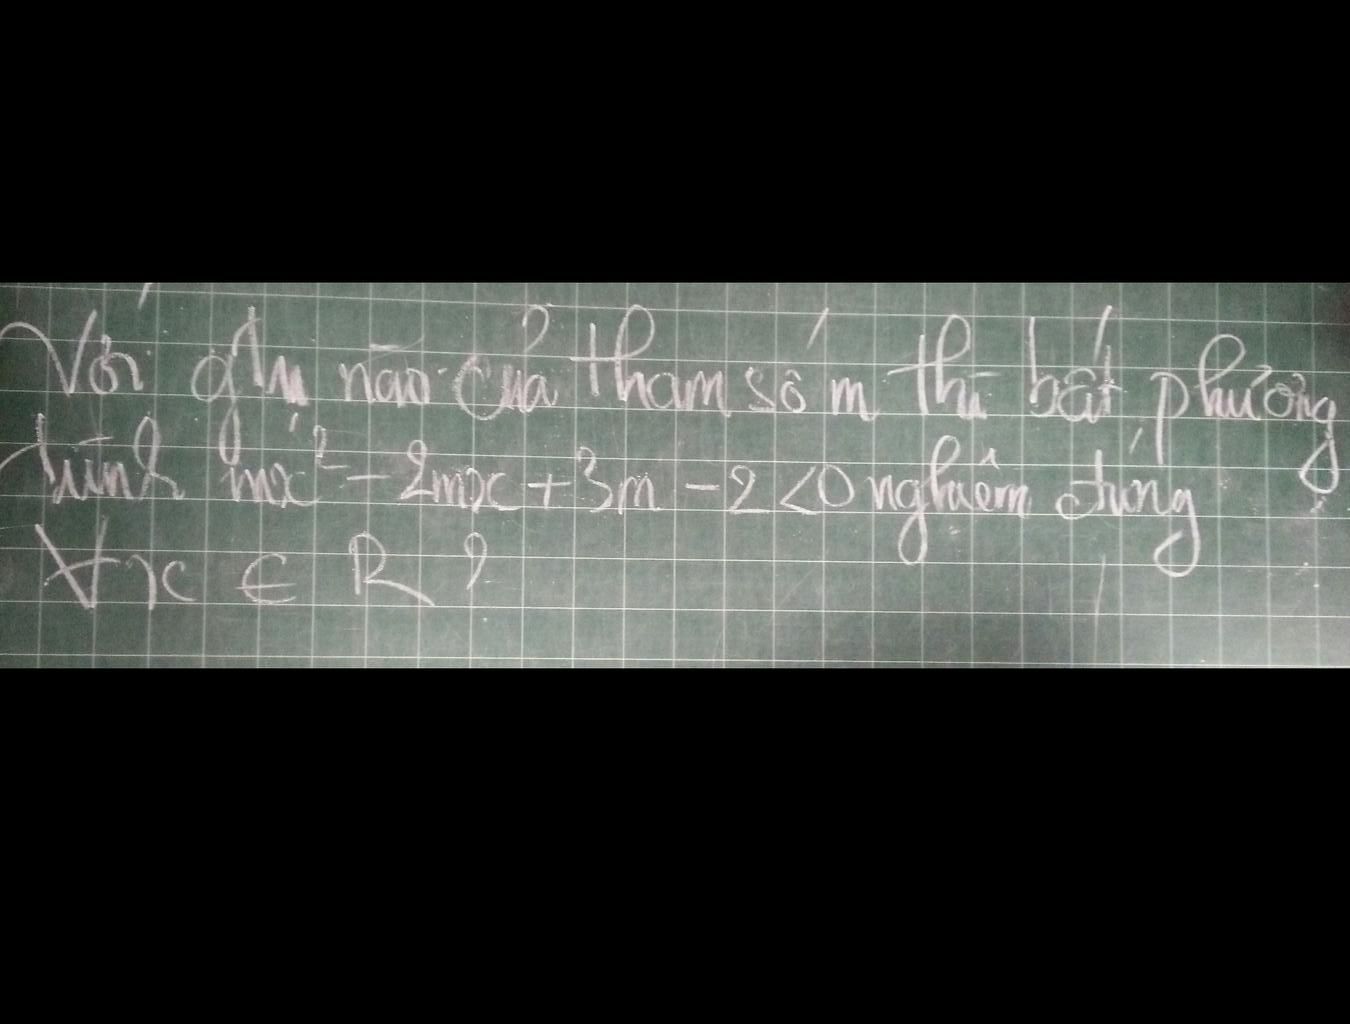 Với gtrị nào của tham số m thì bất phương
trình mx² - 2mx + 3m - 2 < 0 nghiệm đúng
∀x ∈ R ?